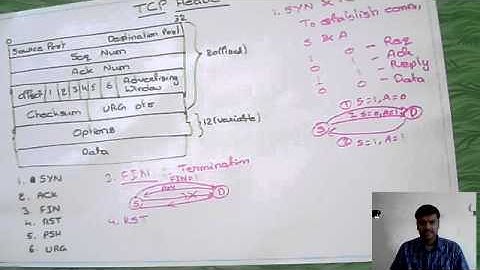 TCP Header
0 32
Source Port Destination Port
Seq Num
Ack Num
offset 1 2 3 4 5 6 Advertising Window
Checksum URG ptr
Options
Data
20(fixed)
12(variable)
1. SYN
2. ACK
3. FIN
4. RST
5. PSH
6. URG
2. FIN : Termination
FIN=1
S D
4. RST
1. SYN &
To establish conn.
S & A
1 0 - Req
1 1 - Ack Reply
0 - Data
① S=1, A=0
S D
② S=1, A=1